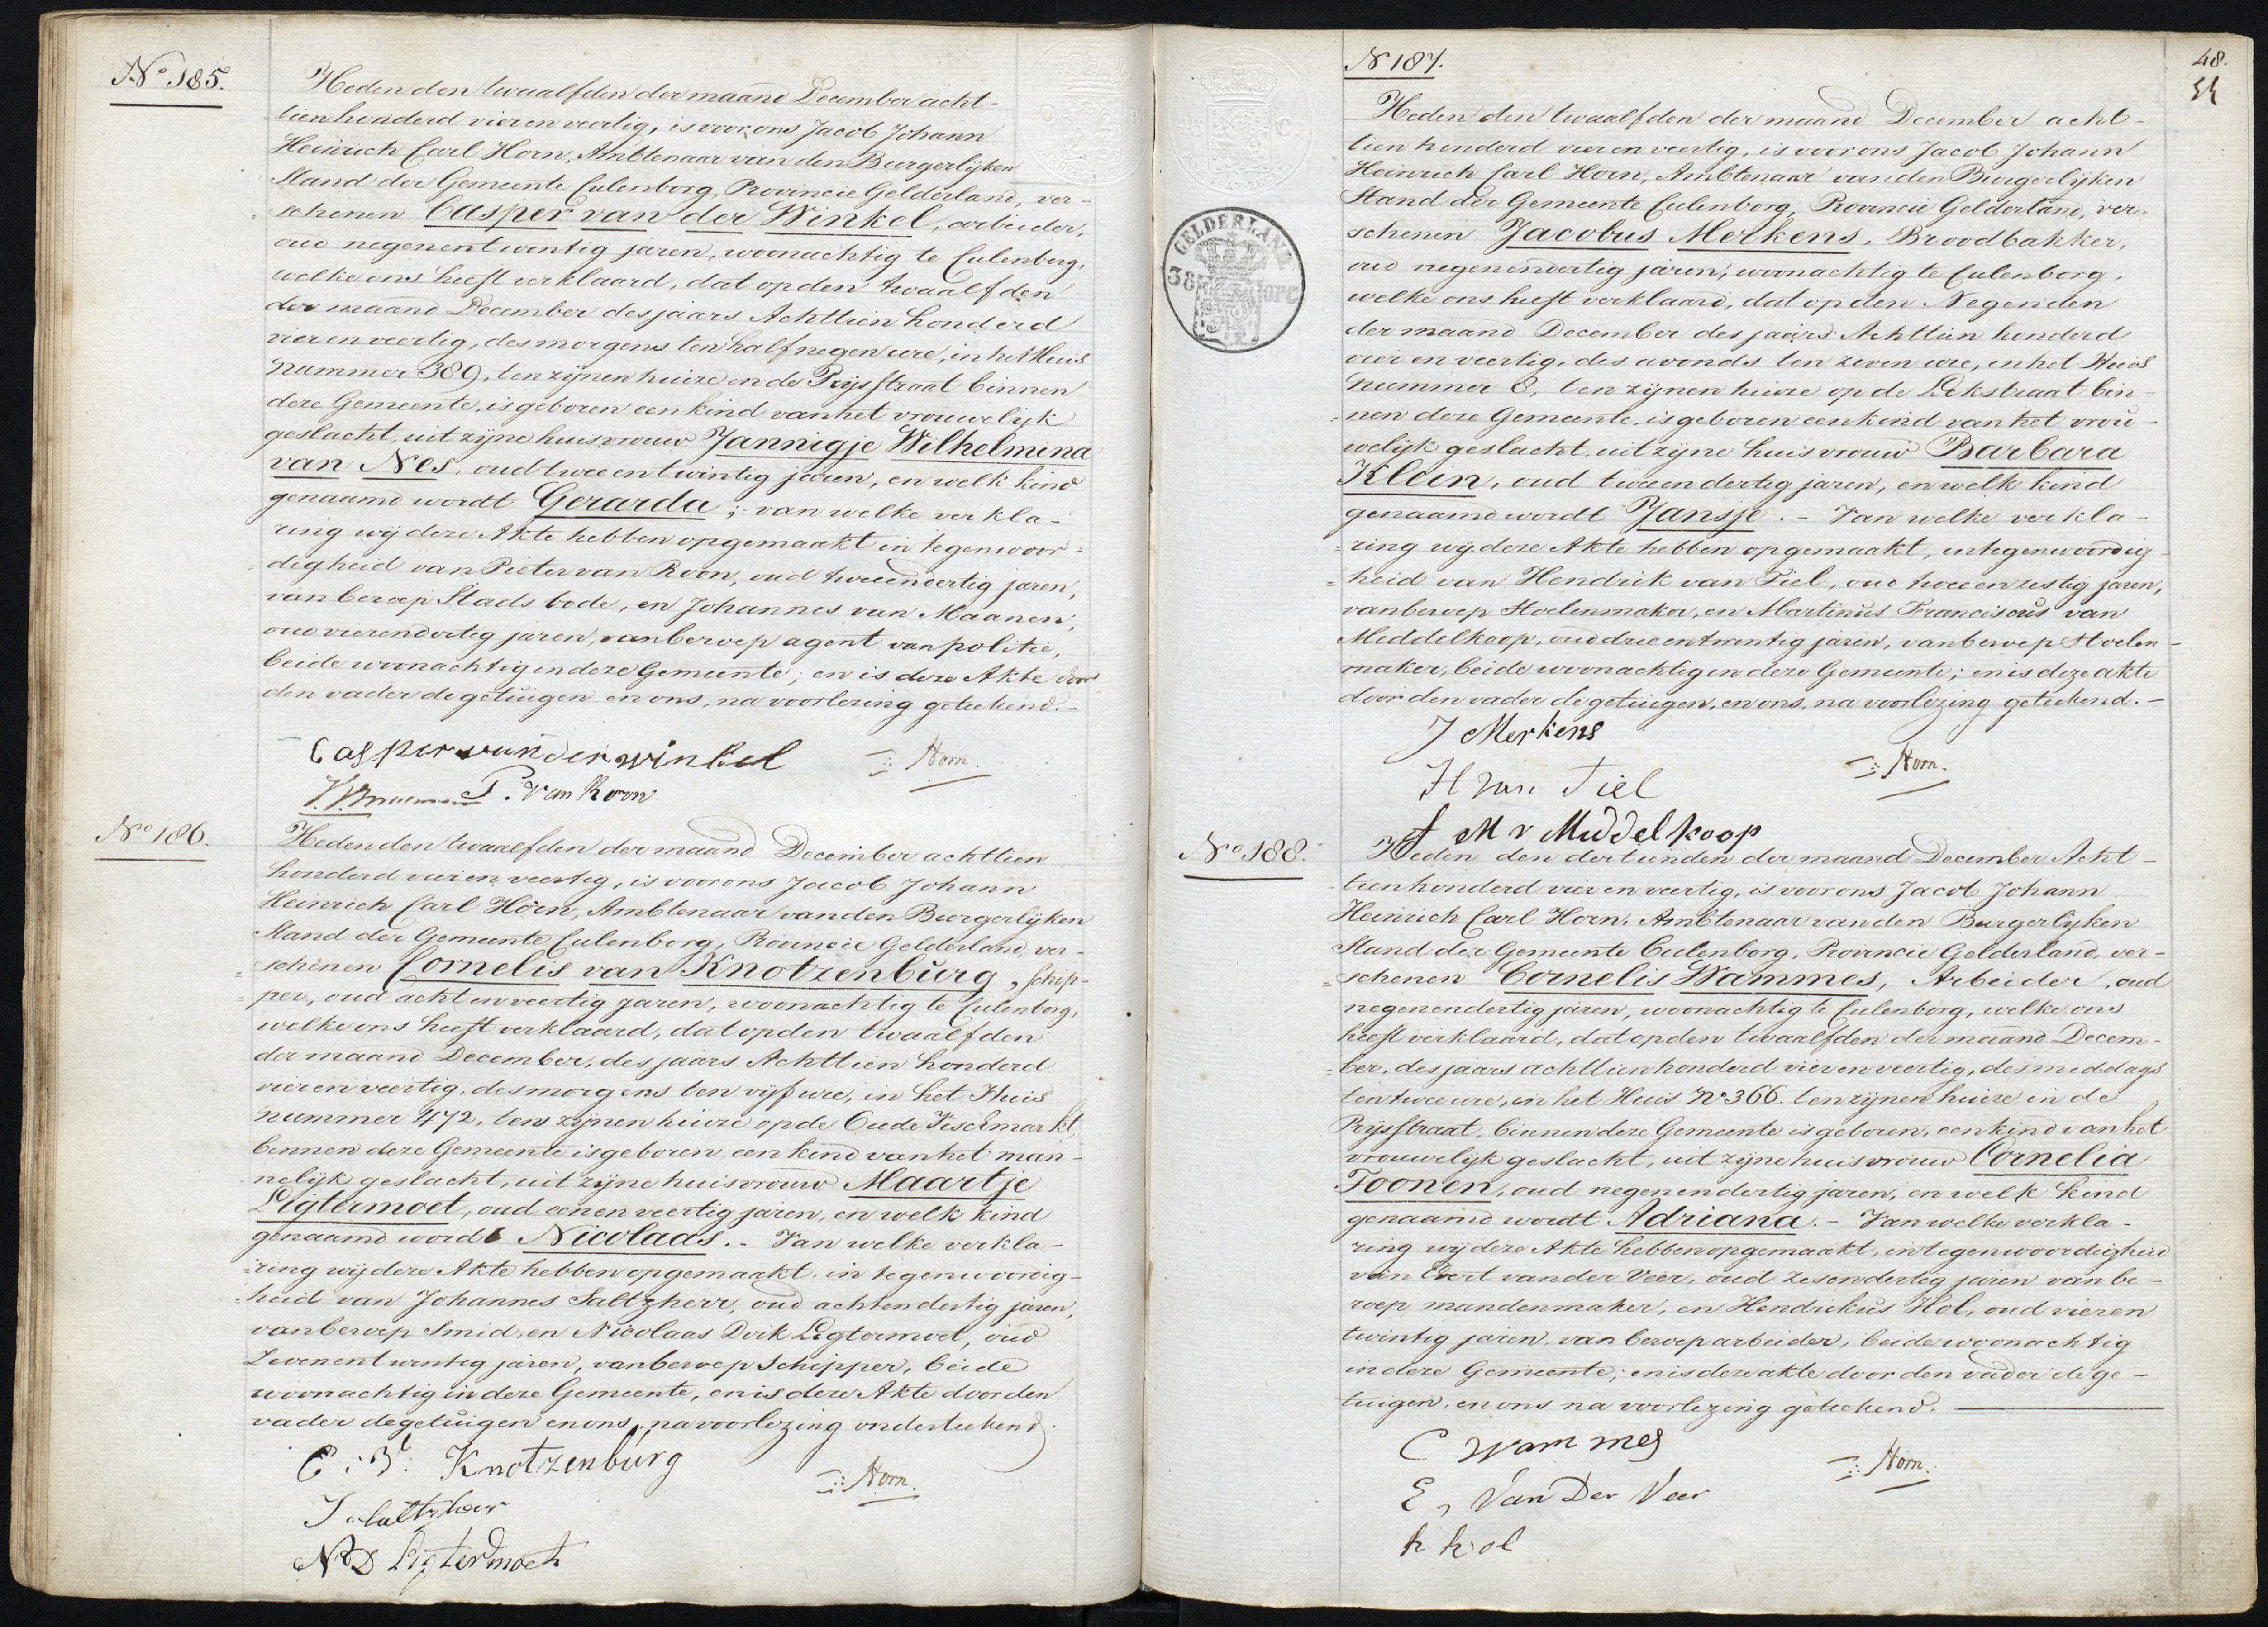 No. 185.
Heden den twaalfden der maand December acht-
tien honderd vier en veertig, is voor ons Jacob Johann
Heinrich Carl Horn, Ambtenaar van den Burgerlijken
Stand der Gemeente Culenborg, Provincie Gelderland, ver-
schenen Casper van der Winkel, arbeider,
oud negenentwintig jaren, woonachtig te Culenborg,
welke ons heeft verklaard, dat op den twaalfden
der maand December des jaars Achttien honderd
vier en veertig, des morgens ten half negen ure, in het Huis
nummer 389, ten zijnen huize in de Prijsstraat binnen
deze Gemeente, is geboren een kind van het vrouwelijk
geslacht, uit zijne huisvrouw Jannigje Wilhelmina
van Nes, oud twee en twintig jaren, en welk kind
genaamd wordt Gerarda; van welke verkla-
ring wij deze Akte hebben opgemaakt in tegenwoor-
digheid van Pieter van Roon, oud twee en dertig jaren,
van beroep Stads bode, en Johannes van Maanen,
oud vierendertig jaren, van beroep agent van politie,
beide woonachtig in deze Gemeente; en is deze Akte door
den vader de getuigen en ons, na voorlezing geteekend.-
Casper van der winkel
Horn.
P. van Roon
No 186.
Heden den twaalfden der maand December achttien
honderd vier en veertig, is voor ons Jacob Johann
Heinrich Carl Horn, Ambtenaar van den Burgerlijken
Stand der Gemeente Culenborg, Provincie Gelderland, ver-
schenen Cornelis van Knotzenburg, schip-
per, oud acht en veertig jaren, woonachtig te Culenborg,
welke ons heeft verklaard, dat op den twaalfden
der maand December, des jaars Achttien honderd
vier en veertig, des morgens ten vijf ure, in het Huis
nummer 472, ten zijnen huize op de Oude Vischmarkt,
binnen deze Gemeente is geboren een kind van het man-
nelijk geslacht, uit zijne huisvrouw Maartje
Ligtermoet, oud eenen veertig jaren, en welk kind
genaamd wordt Nicolaas. - Van welke verkla-
ring wij deze Akte hebben opgemaakt, in tegenwoordig-
heid van Johannes Saltzherr, oud achtendertig jaren,
van beroep Smid, en Nicolaas Dirk Ligtermoet, oud
Zevenentwintig jaren, van beroep Schipper, beide
woonachtig in deze Gemeente, en is deze Akte door den
vader de getuigen en ons, na voorlezing onderteekend.
C. v. Knotzenburg
Horn.
J. Saltzherr
N D Ligtermoet
48.
N 187.
Heden den twaalfden der maand December acht-
tien honderd vier en veertig, is voor ons Jacob Johann
Heinrich Carl Horn, Ambtenaar van den Burgerlijken
Stand der Gemeente Culenborg, Provincie Gelderland, ver-
schenen Jacobus Merkens, Broodbakker,
oud negenendertig jaren, woonachtig te Culenborg,
welke ons heeft verklaard, dat op den Negenden
der maand December des jaars Achttien honderd
vier en veertig, des avonds ten zeven ure, in het Huis
Nummer 8, ten zijnen huize op de Lekstraat bin-
nen deze Gemeente, is geboren een kind van het vrou-
welijk geslacht uit zijne huisvrouw Barbara
Klein, oud twee en dertig jaren, en welk kind
genaamd wordt Jansje. - Van welke verkla-
ring wij deze Akte hebben opgemaakt, in tegenwoordig-
heid van Hendrik van Tiel, oud twee en zestig jaren,
van beroep Stoelenmaker, en Martinus Franciscus van
Middelkoop, oud drie en twintig jaren, van beroep Stoelen-
maker, beide woonachtig in deze Gemeente; en is deze akte
door den vader de getuigen, en ons, na voorlezing geteekend.-
J Merkens
Horn.
H van Tiel
M v Middelkoop
GELDERLAND
No 188.
Heden den dertienden der maand December Acht-
tien honderd vier en veertig, is voor ons Jacob Johann
Heinrich Carl Horn, Ambtenaar van den Burgerlijken
Stand der Gemeente Culenborg, Provincie Gelderland, ver-
schenen Cornelis Wammes, Arbeider, oud
negenendertig jaren, woonachtig te Culenborg, welke ons
heeft verklaard, dat op den twaalfden der maand Decem-
ber, des jaars achttien honderd vier en veertig, des middags
ten twee ure, in het Huis No 366. ten zijnen huize in de
Prijsstraat, binnen deze Gemeente is geboren, een kind van het
vrouwelijk geslacht, uit zijne huisvrouw Cornelia
Toonen, oud negenendertig jaren, en welk kind
genaamd wordt Adriana. - Van welke verkla-
ring wij deze Akte hebben opgemaakt, in tegenwoordigheid
van Evert van der Veer, oud zesendertig jaren van be-
roep mandenmaker, en Hendrikus Hol, oud vier en
twintig jaren, van beroep arbeider, beide woonachtig
in deze Gemeente; en is deze akte door den vader de ge-
tuigen, en ons na voorlezing geteekend.
C Wammes
Horn.
E, Van Der Veer
h hol